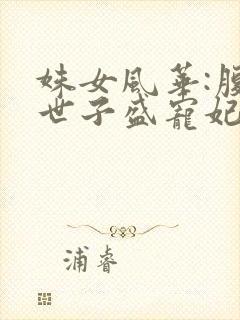 姝女風華:腹
世子盛寵妃
浦睿